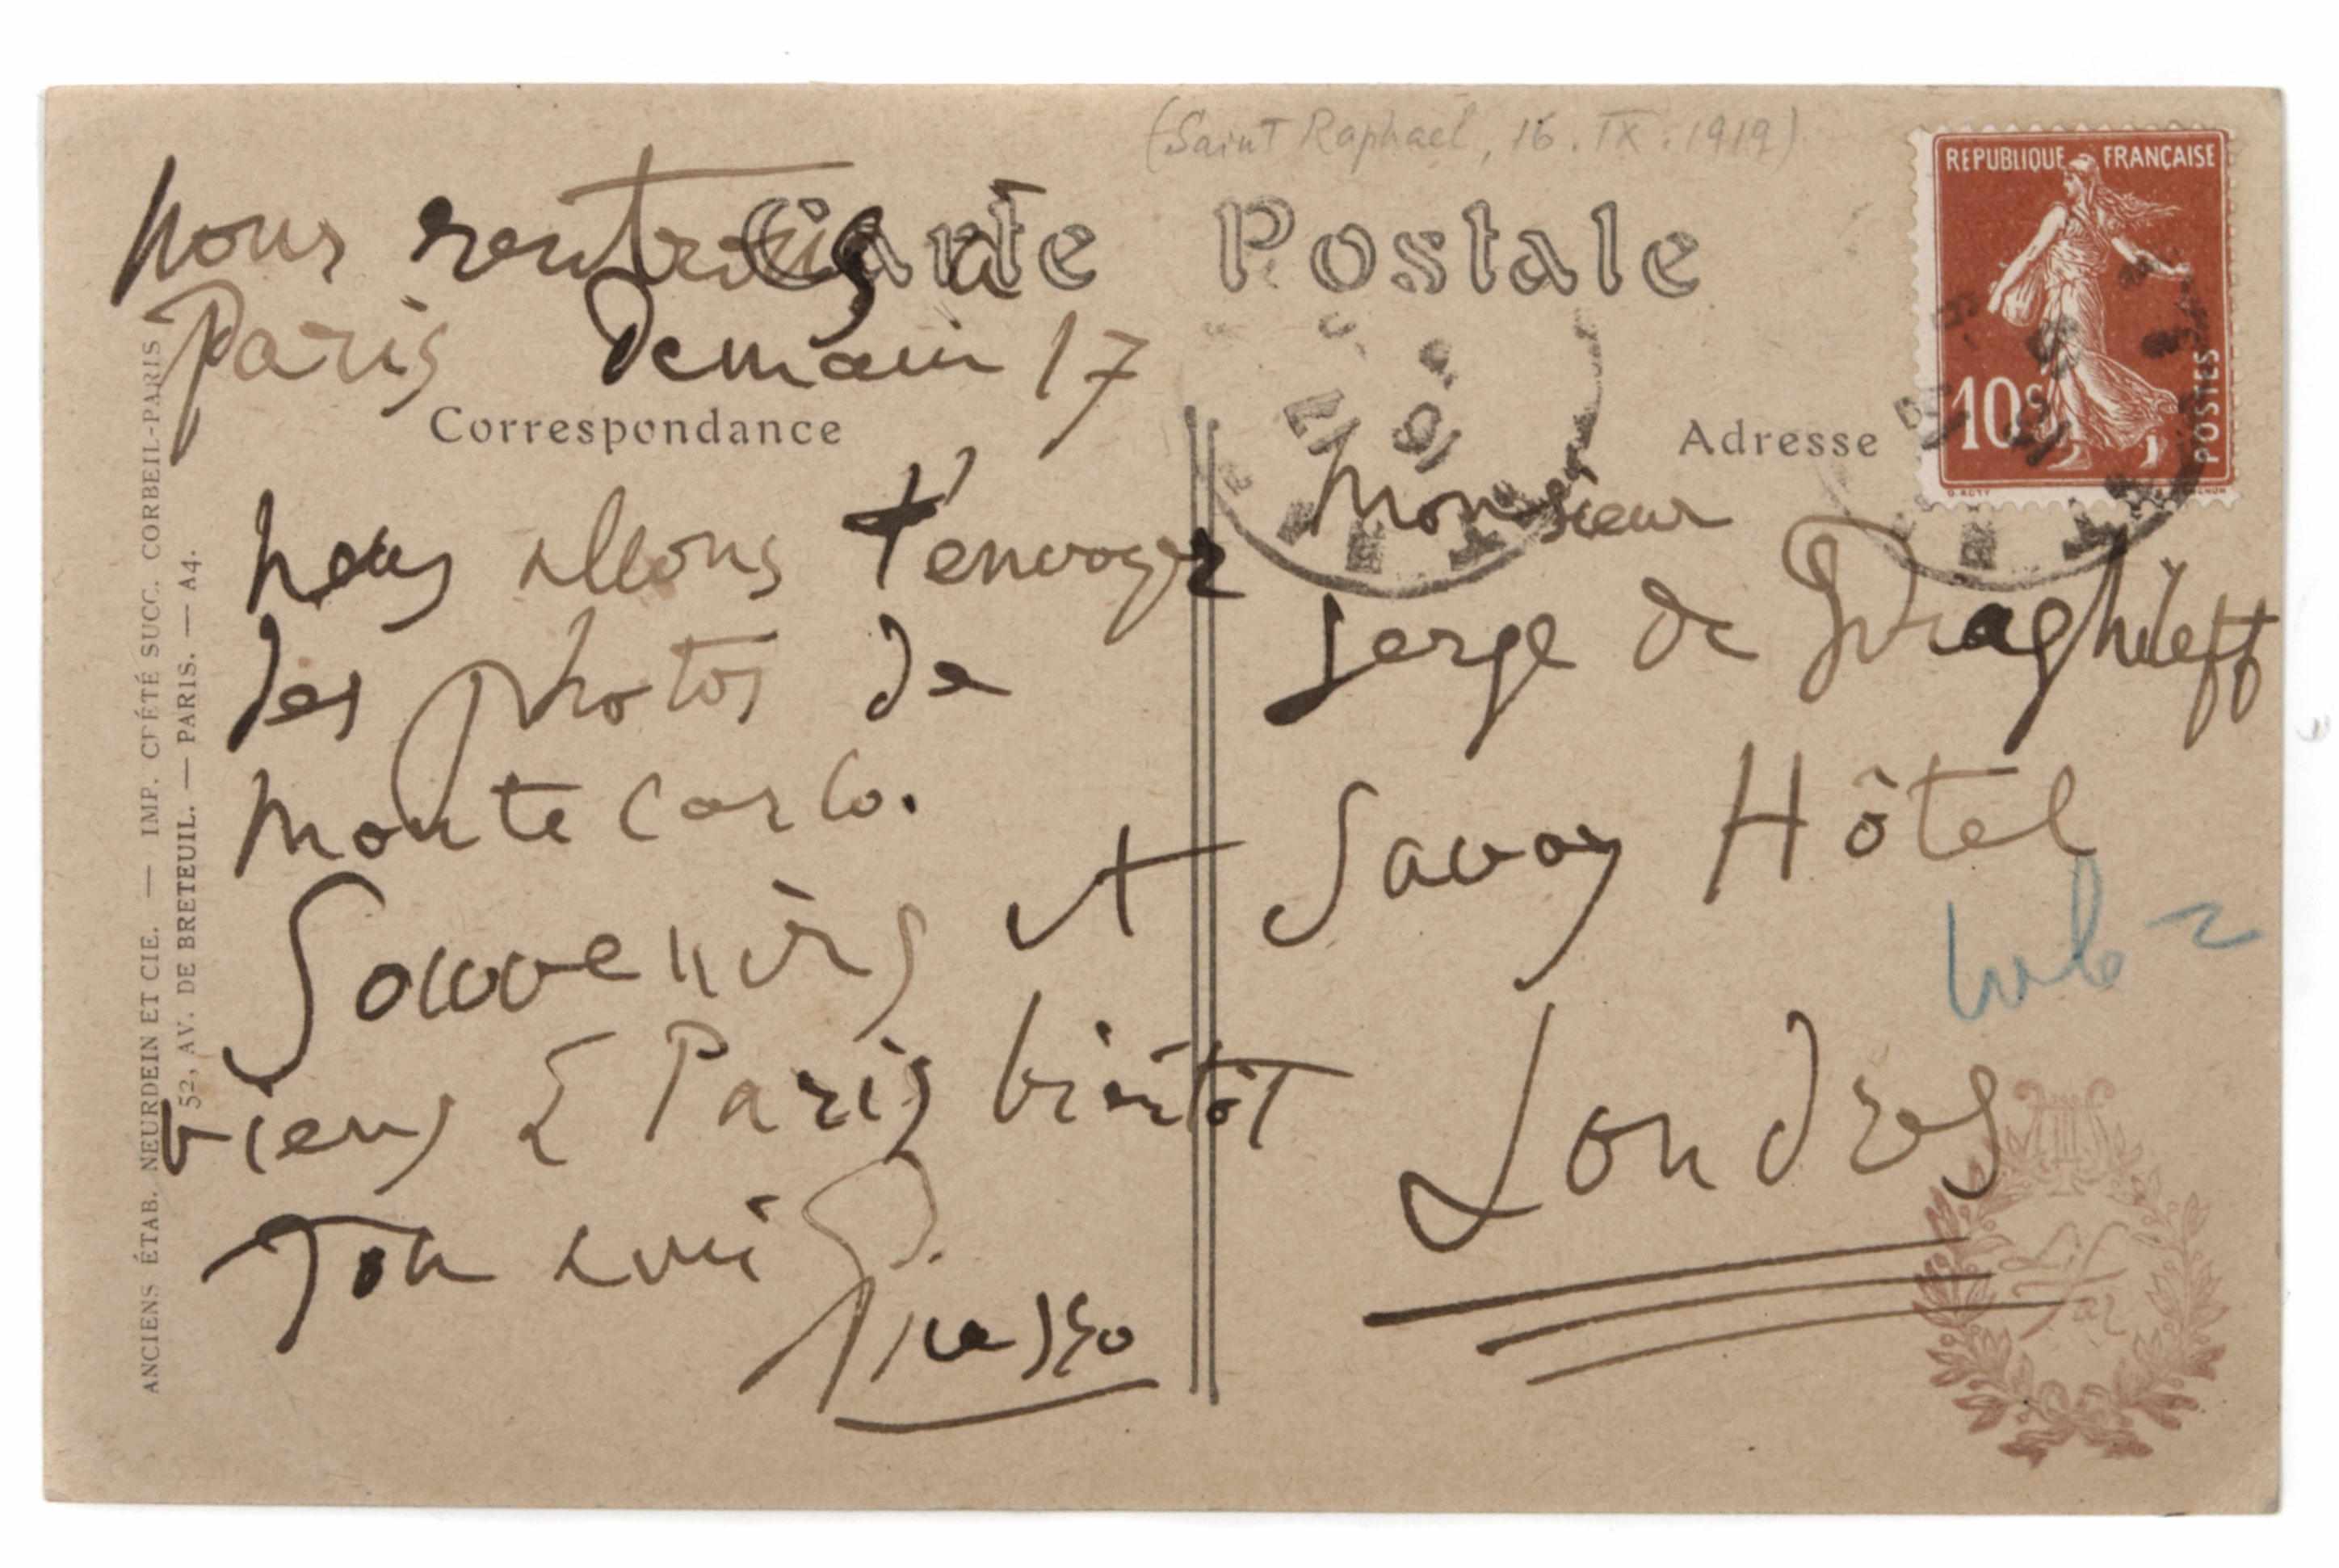 (Saint Raphael, 16.IX.1919)
Carte Postale
REPUBLIQUE FRANÇAISE
10c
POSTES
nous rentrons à
Paris Demain 17
Correspondance
nous allons t'envoyer
des photos de
Monte Carlo.
Souvenirs et
viens à Paris bientôt
Ton ami
Picasso
Adresse
Monsieur
Serge de Diaghileff
Savoy Hôtel
Londres
Lif
ANCIENS ÉTAB. NEURDEIN ET CIE. — IMP. CRÉTÉ SUCC. CORBEIL-PARIS
52, AV. DE BRETEUIL. — PARIS. — A4.